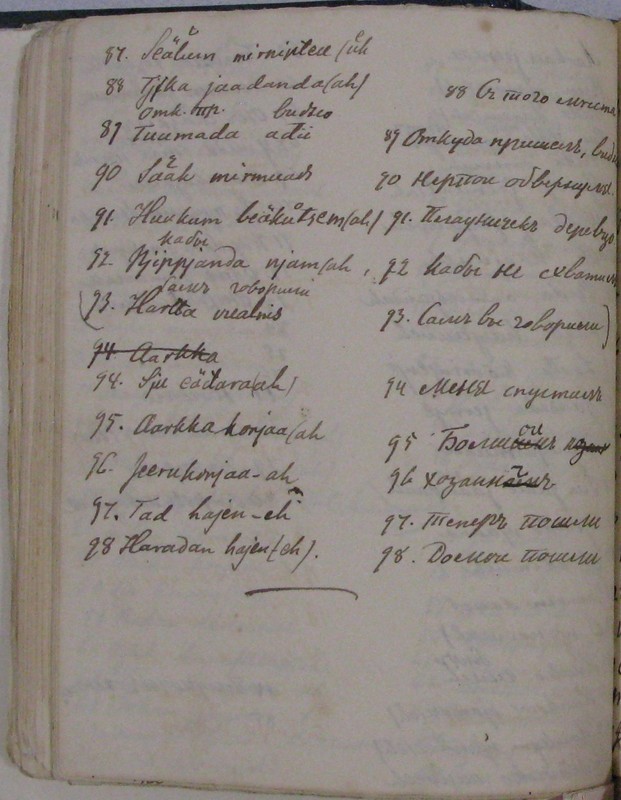 87. Seäŭm mirnintea (ŭh
88 Tjka jaadanda(ah) 88 Съ того мѣста
отк. пр. видно
89 Tuumada adii 89 Откуда пришелъ, вид
90 Sääh mirmuad 90 нерпои обвернулся.
91. Huukum beäkůtsem(ah) 91. Пелауничекъ деревцо
кабы
92. Njippjanda njam(ah, 92 кабы не схватилъ
самъ говорили
(93. Hartta vealnis 93. Самъ вы говорили)
94 Aarkka
94. Sju eädara(ah) 94 меня спустилъ
95. Aarkka horjaa(ah 95 Большои
96. Jeeru horjaa-ah 96 хозаинъ
97. Tad hajen-eh 97. Теперъ пошли
98 Haradan hajen(eh). 98. Домои пошли